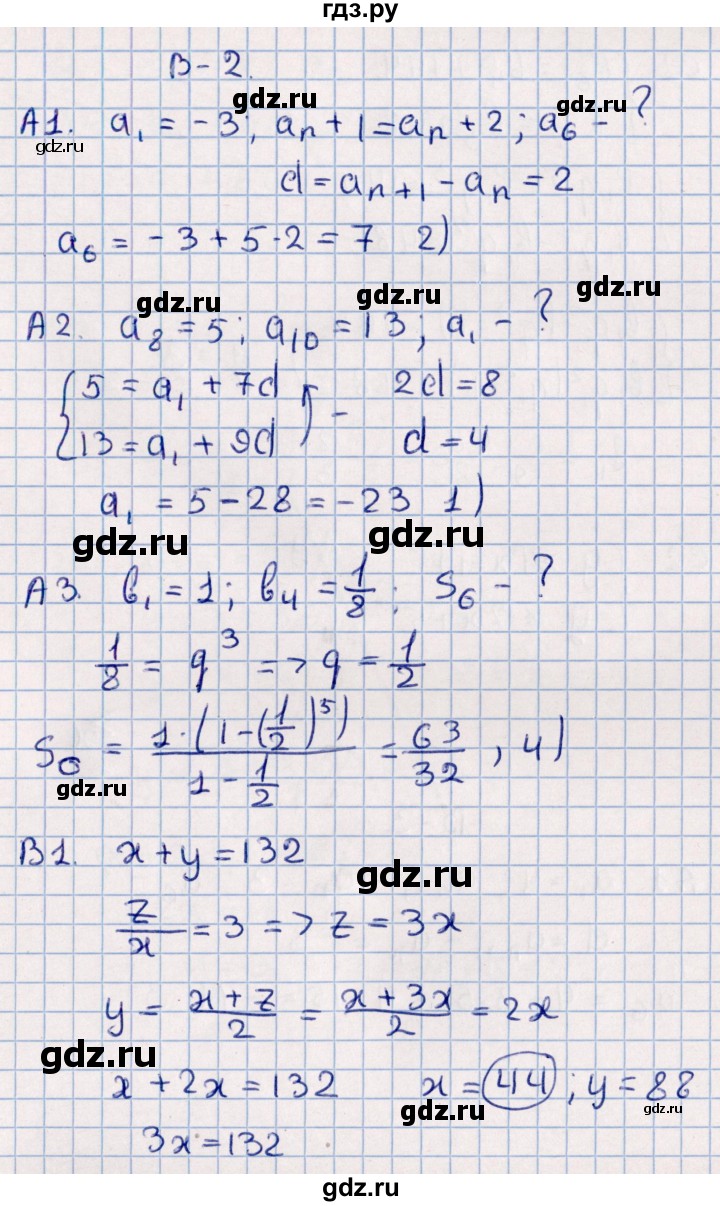 гдз.ру
В-2.
gdz.ru
gdz.ru
А1. a₁ = -3; aₙ + 1 = aₙ + 2; a₆ - ?
gdz.ru
d = aₙ₊₁ - aₙ = 2
a₆ = -3 + 5·2 = 7 2)
gdz.ru
gdz.ru
gdz.ru
А2. a₈ = 5; a₁₀ = 13; a₁ - ?
{ 5 = a₁ + 7d 2d = 8
13 = a₁ + 9d ) - d = 4
a₁ = 5 - 28 = -23 1)
gdz.ru
gdz.ru
А3. b₁ = 1; b₄ = 1/8; S₆ - ?
1/8 = q³ => q = 1/2
S₆ = 1·(1-(1/2)⁵) / (1 - 1/2) = 63/32, 4)
gdz.ru
gdz.ru
В1. x + y = 132
gdz.ru
z/x = 3 => z = 3x
y = (x + z)/2 = (x + 3x)/2 = 2x
gdz.ru
x + 2x = 132 x = 44; y = 88
gdz.ru
gdz.ru
3x = 132
gdz.ru